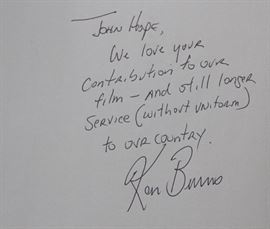 John Hope,
We love your
contribution to our
film – and still longer
service (without uniform)
to our country.
Ken Burns